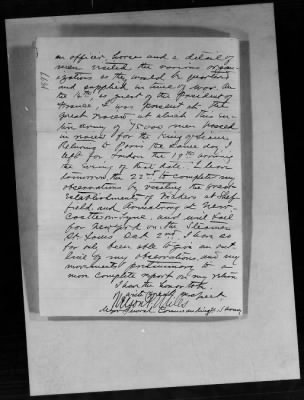 an officer, horses and a detail of
men visited the various organ-
izations as they would be quartered
and supplied in time of war. On
the 14th, as guest of the President of
France, I was present at the
great review at which this en-
tire army of 75000 men passed
in review for the King of Siam.
Returning to Paris the same day, I
left for London the 19th arriving
the evening of that date. I leave
tomorrow the 22nd to complete my
observations by visiting the great
establishments of Vickers at Shef-
field and Armstrong at New-
castle-on-Tyne, and will sail
for New York on the steamer
St. Louis Oct 2nd. I have as
far only been able to give an out-
line of my observations and my
movements preliminary to a
more complete report on my return
I have the honor to be
with great respect
Nelson A. Miles
Major General Commanding U.S. Army